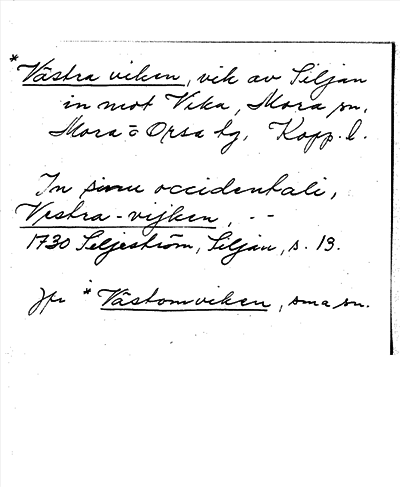 *Västra viken, vik av Siljan
in mot Vika, Mora sn,
Mora o Orsa tg, Kopp. l.
In sinu occidentali,
Vestra-vijken, --
1730 Seljeström, Siljan, s. 13.
Jfr *Västomviken, sma sn.